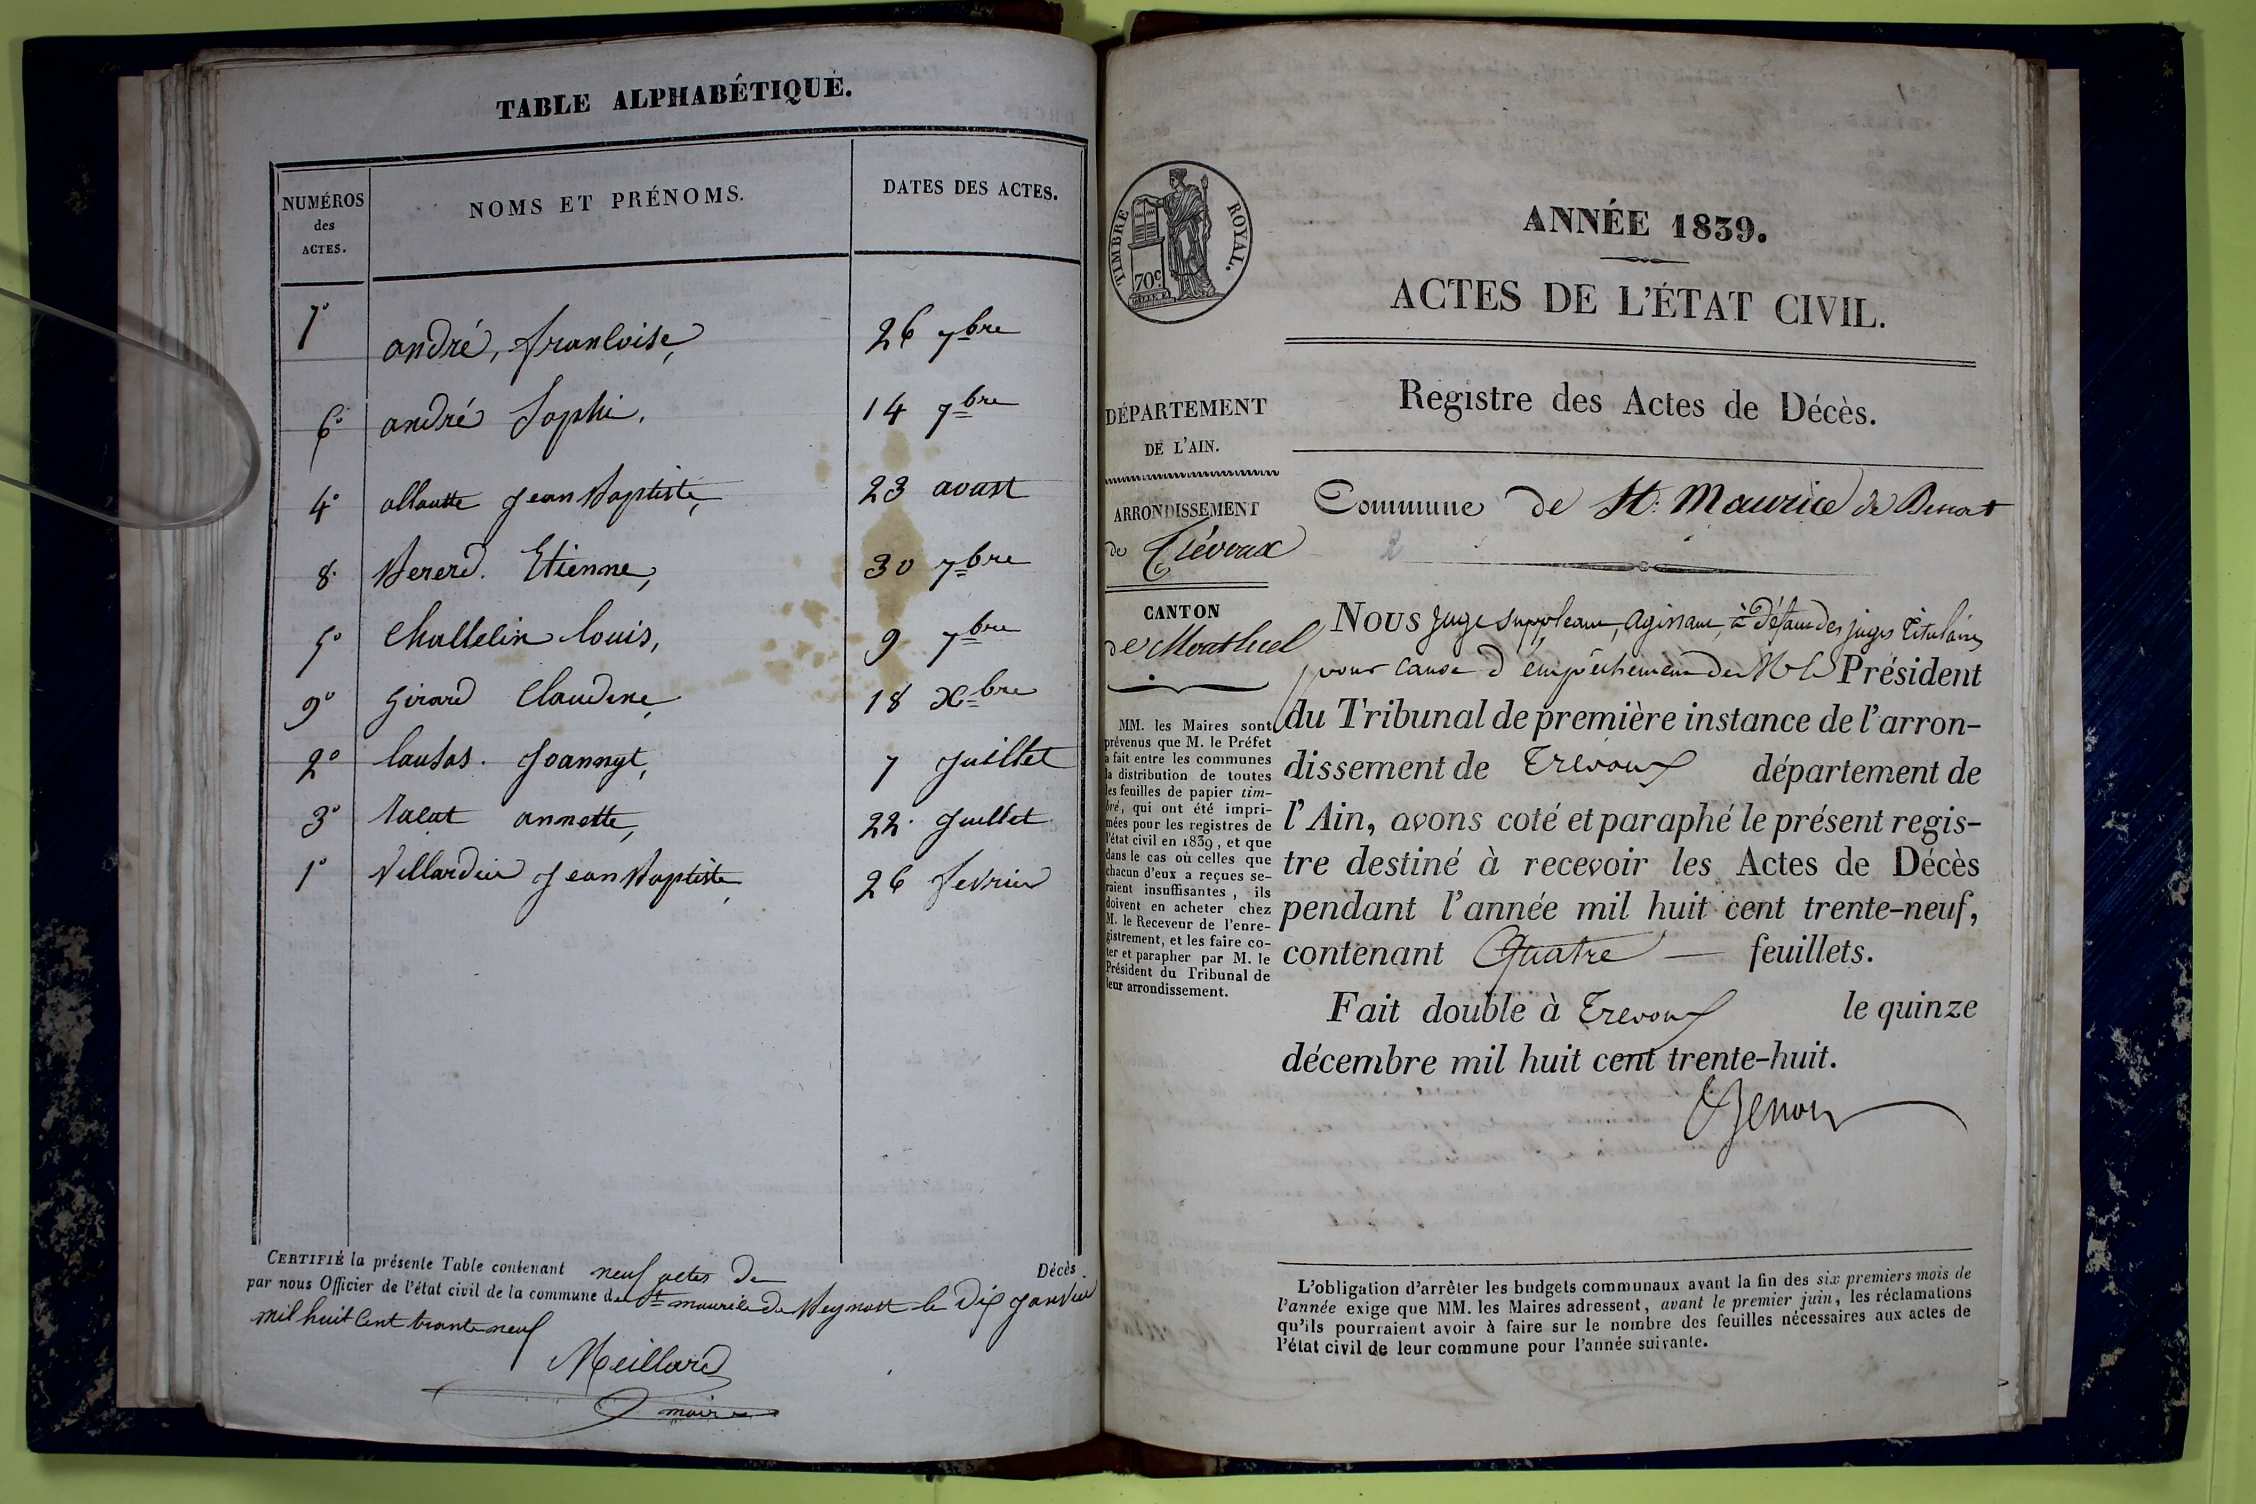 TABLE ALPHABÉTIQUE.
NUMÉROS
des
ACTES.
NOMS ET PRÉNOMS.
DATES DES ACTES.
7° andré, françoise, 26 7bre
6° andré Sophie. 14 7bre
4° allantte Jean Baptiste, 23 avust
8° Bererd. Etienne, 30 7bre
5° Challelin Louis, 9 7bre
9° Girard Claudine, 18 Xbre
2° Joannyt, 7 Juillet
3° annette, 22. Juillet
1° Villardier Jean Baptiste, 26 fevrier
CERTIFIÉ la présente Table contenant neuf actes de Décès
par nous Officier de l'état civil de la commune de St maurice de Beynost le Dix Janvier
mil huit Cent trente neuf
Meillard
maire
TIMBRE ROYAL.
70c
ANNÉE 1839.
ACTES DE L'ÉTAT CIVIL.
Registre des Actes de Décès.
DÉPARTEMENT
DE L'AIN.
ARRONDISSEMENT
de Trévoux
CANTON
de Montluel
MM. les Maires sont
prévenus que M. le Préfet
a fait entre les communes
la distribution de toutes
les feuilles de papier tim-
bré, qui ont été impri-
mées pour les registres de
l'état civil en 1839, et que
dans le cas où celles que
chacun d'eux a reçues se-
raient insuffisantes, ils
doivent en acheter chez
M. le Receveur de l'enre-
gistrement, et les faire co-
ter et parapher par M. le
Président du Tribunal de
leur arrondissement.
Commune de St. Maurice de Benost
2
NOUS juge suppléant, agissant, à défaut des juges titulaires
pour cause d'empêchement de Mr le Président
du Tribunal de première instance de l'arron-
dissement de Trevoux département de
l'Ain, avons coté et paraphé le présent regis-
tre destiné à recevoir les Actes de Décès
pendant l'année mil huit cent trente-neuf,
contenant Quatre feuillets.
Fait double à Trevoux le quinze
décembre mil huit cent trente-huit.
L'obligation d'arrêter les budgets communaux avant la fin des six premiers mois de
l'année exige que MM. les Maires adressent, avant le premier juin, les réclamations
qu'ils pourraient avoir à faire sur le nombre des feuilles nécessaires aux actes de
l'état civil de leur commune pour l'année suivante.